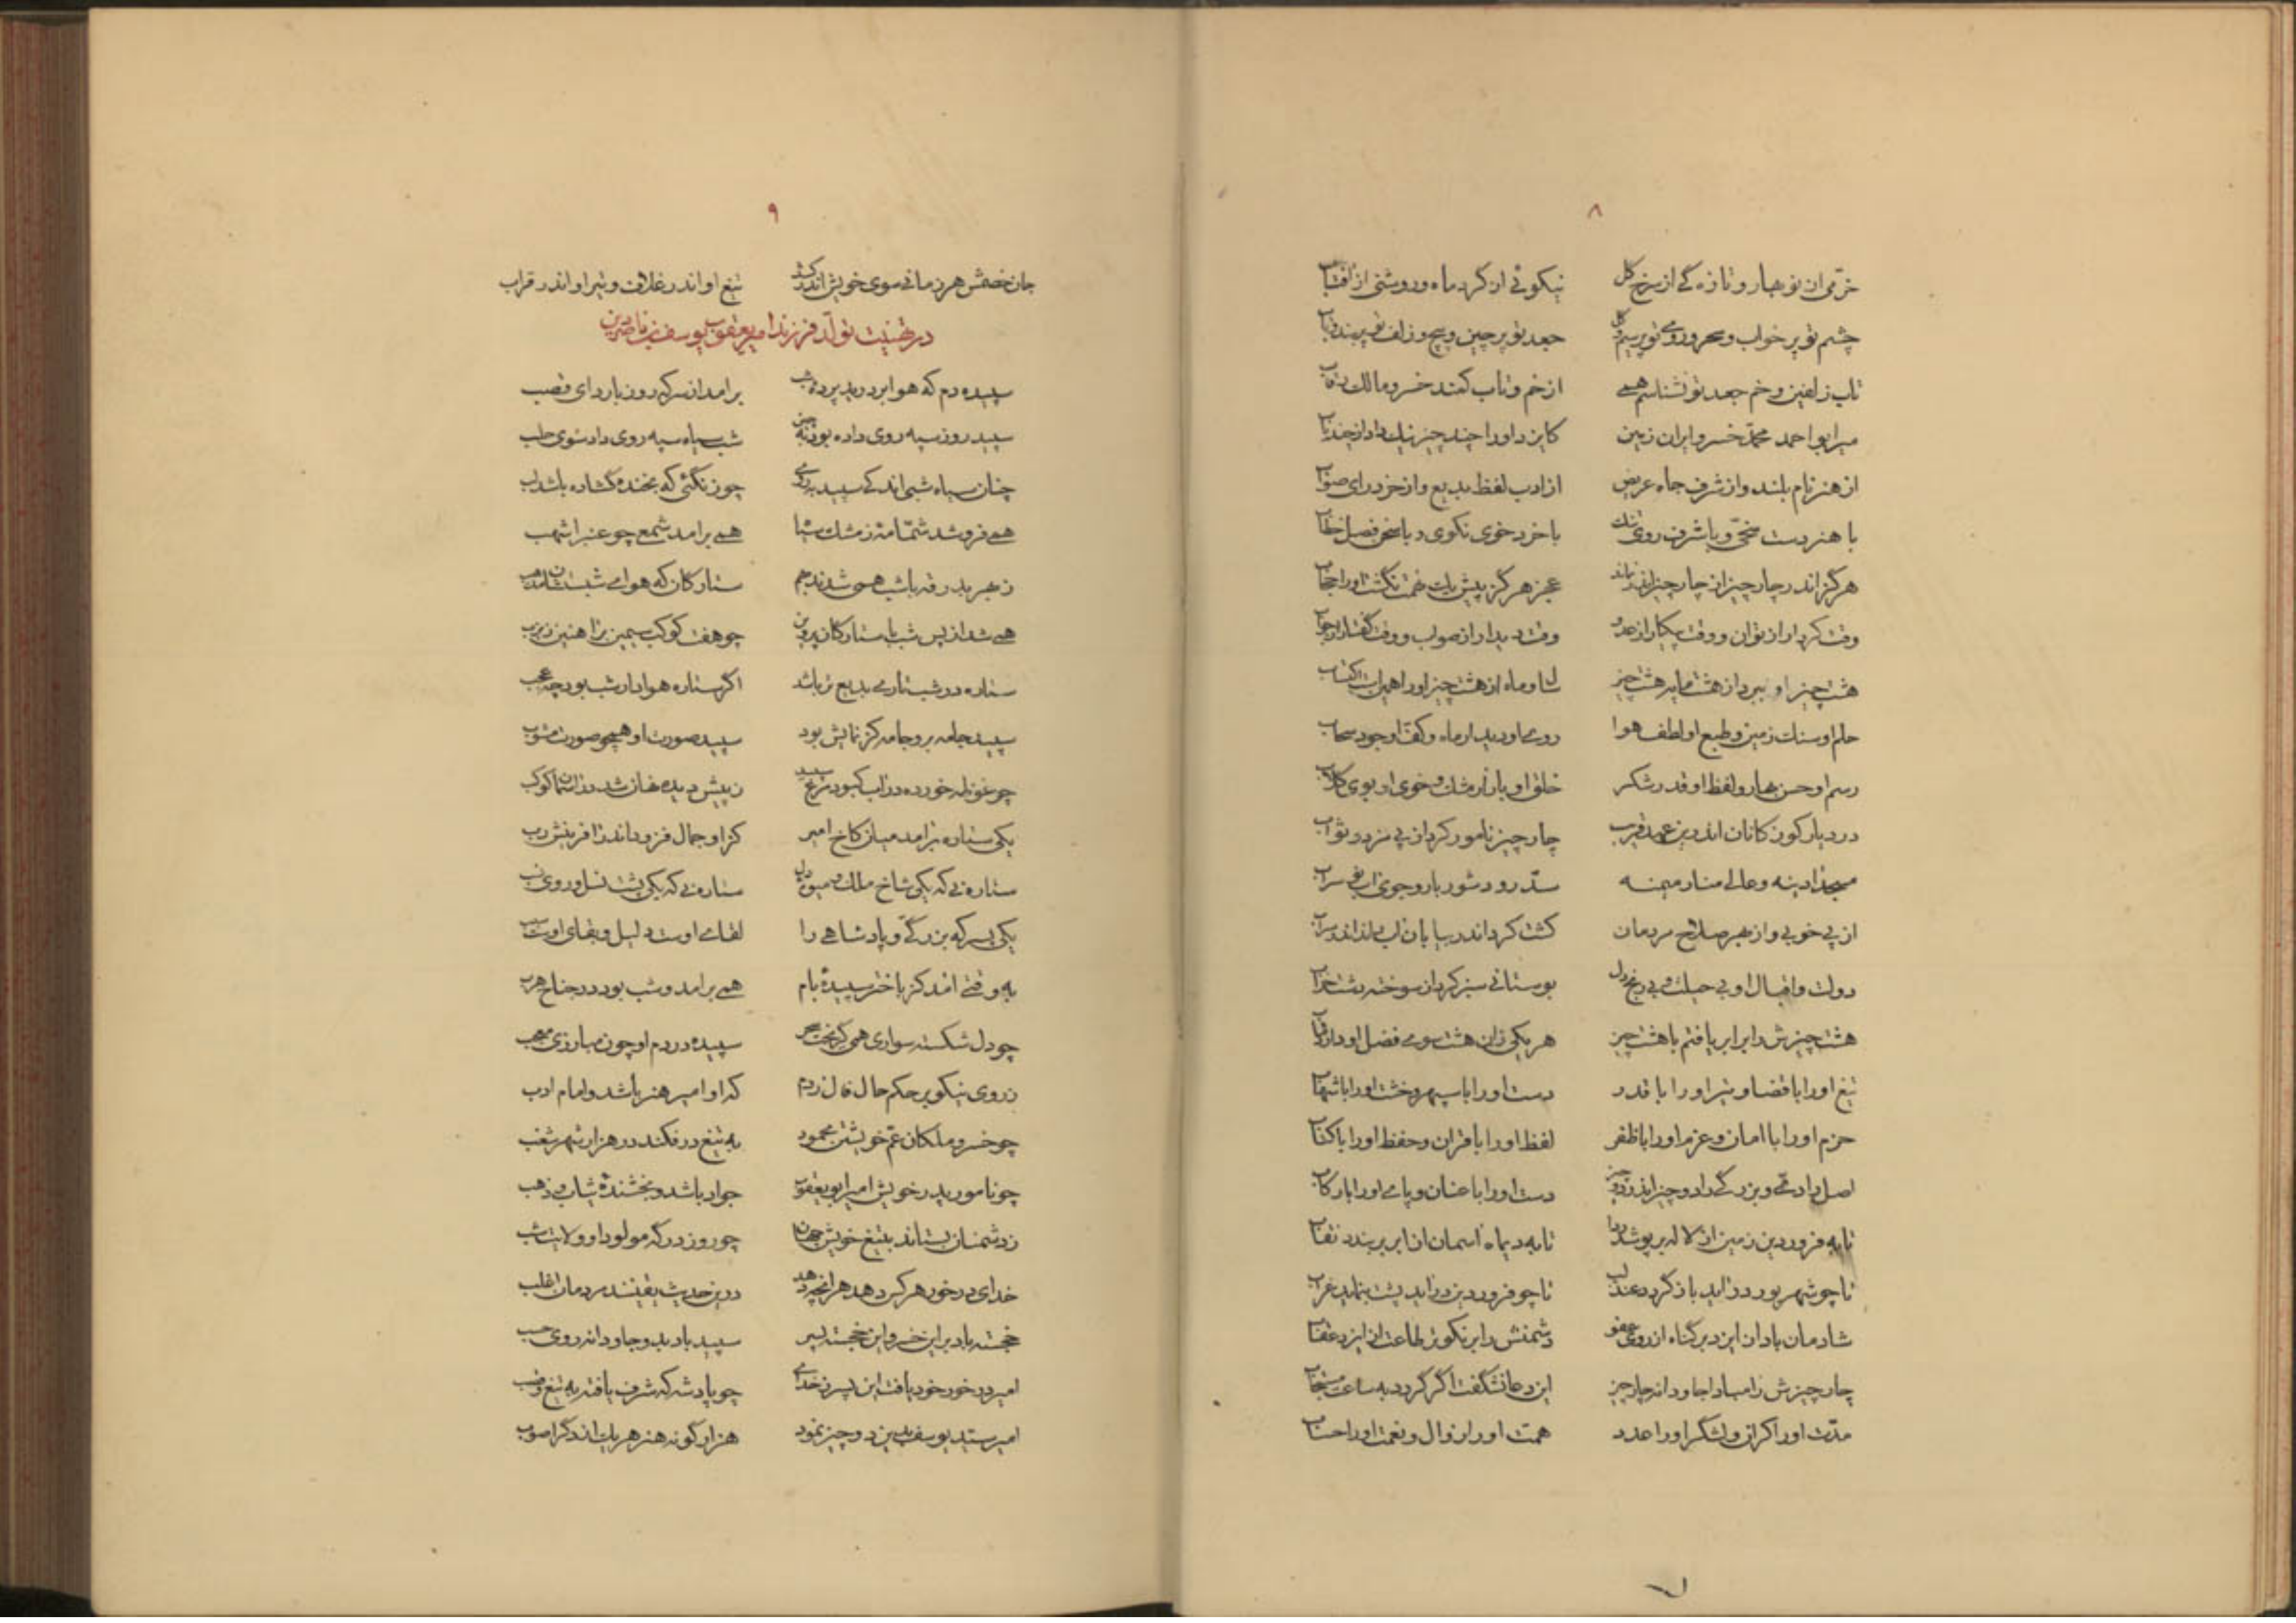 ۸
خرّمی از نوبهار و تازه‌گی از سرخ گل نیکوئی از گرد ماه و روشنی از آفتاب
چشم تو پر خواب و سحر و روی تو پر سیم و گل جعد تو پر چین و پیچ و زلف تو پر بند و تاب
تاب زلفین و خم جعد تو نشناسم همی از خم و تاب کمند خسرو مالک رقاب
میر ابو احمد محمّد خسرو ایران زمین
از هنر نام بلند و از شرف جاه عریض از ادب لفظ بدیع و از خرد رای صواب
با هنر دست سخیّ و با شرف روی نیک با خرد خوی نکوی و با سخن فصل خطاب
هرگز اندر چار چیز از چار چیز
وقت کردار از توان و وقت پیکار از عدو وقت دیدار از صواب و وقت گفتار از جواب
هشت چیز او ببرد از هشت مایه هشت چیز سال و ماه از هشت چیز او را همین است اکتساب
حلم او سنگ زمین و طبع او لطف هوا روی او دیدار ماه و کفّ او جود سحاب
رسم او حسن بهار و لفظ او قدر شکر خلق او بازار مشک و خوی او بوی گلاب
در دیار کوزکانان اندرین عهد قریب چار چیز نامور کرد از پی مزد و ثواب
مسجد آدینه و عالی منار میمنه سدّ رود شور بار و جوی آب
از پی خوبی و از بهر صلاح مردمان کشت کرد اندر بیابان آب راند اندر سراب
دولت و اقبال او بی حیلت و بی رنج دل بوستانی سبز کرد از سوخته دشت خراب
هشت چیزش را برابر یافتم با هشت چیز هر یکی زان هشت سوی فضل او دارد مآب
تیغ او را با قضا و تیر او را با قدر دست او را با سپهر و خشت او را با شهاب
حزم او را با امان و عزم او را با ظفر لفظ او را با قران و حفظ او را با کتاب
اصل رادی و بزرگی را دو چیز اندر دو چیز دست او را با عنان و پای او را با رکاب
تا به فروردین زمین از لاله بر پوشد ردا تا به دیماه آسمان از ابر بر بندد نقاب
تا چو شهریور درآید باز گردد عندلیب تا چو فروردین درآید پشت بنماید غراب
شادمان باد از ایزد بر گناه از روی عفو دشمنش را بر نکوتر طاعت از ایزد عقاب
چار چیزش را مبادا جاودانه چار چیز این دعا نشگفت اگر گردد به ساعت مستجاب
مدّت او را کران و لشگر او را عدد همت او را زوال و نعمت او را حساب
۹
جان خصمش هر زمانی سوی خویش اندر کشد تیغ او اندر غلاف و تیر او اندر قراب
در تهنیت تولّد فرزند امیر یعقوب یوسف بن ناصردین
سپیده‌دم که هوا بر درید پرده شب برآمد از سر که روز با ردای قصب
سپید روز سپه روی داده بود شب سیاه سپه روی داد سوی حلب
چنان سیاه شبی اندکی سپید بروی چو زنگئی که بخنده گشاده باشد لب
همی فروشد شمّامه ز مشک سیاه همی برآمد شمعی چو عنبر اشهب
ز بهر بدرقه با شب همی شدند بهم ستارگان که هوای شبستشان مذهب
همی شد از پس شب با ستارگان پروین چو هفت کوکب سیمین بر آهنین زبزب
ستاره در شب تاری بدیع‌تر باشد اگر ستاره هوادار شب بود چه عجب
سپید جامه برو جامه کز نمایش بود سپید صورت او همچو صورت مشوب
چو غوطه خورده در آب کبود مرغ سپید ز پیش دیده نهان شد در آسمان کوکب
یکی ستاره برآمد میان کاخ امیر کز او جمال فزود اندر آفرینش رب
ستاره‌یی که یکی شاخ ملک و میوه دل ستاره‌یی که یکی پشت نسل و روی نسب
یکی پسر که بزرگی و پادشاهی را لقای اوست دلیل و بقای اوست سبب
به وقتی آمد کز باختر سپیده بام همی برآمد و شب بود در جناح هرب
چو دل شکسته سواری همی گریخت سحر سپیده در دم او چون مبارزی مهیب
ز روی نیکو بر حکم حال فال زدم که او امیر هنر باشد و امام ادب
چو خسرو ملکان عمّ خویشتن محمود به تیغ درفکند در هزار شهر شغب
چو نامور پدر خویش امیر ابو یعقوب جواد باشد و بخشندهٔ ثیاب و ذهب
ز دشمنان بستاند بتیغ خویش جهان چو روز درکه مولود او ولایت شب
خدای در خور هر کس دهد هر آنچه دهد درین حدیث یقینند مردمان اغلب
خجسته باد برین خسرو این خجسته پسر سپید باد بدو جاودانه روی حسب
امیر در خور خود یافت این پسر ز خدای چو پادشه که شرف یافته به تیغ و قصب
امیر سیّد یوسف بدین دو چیز نمود هزار گونه هنر هر یک از دگر اصوب